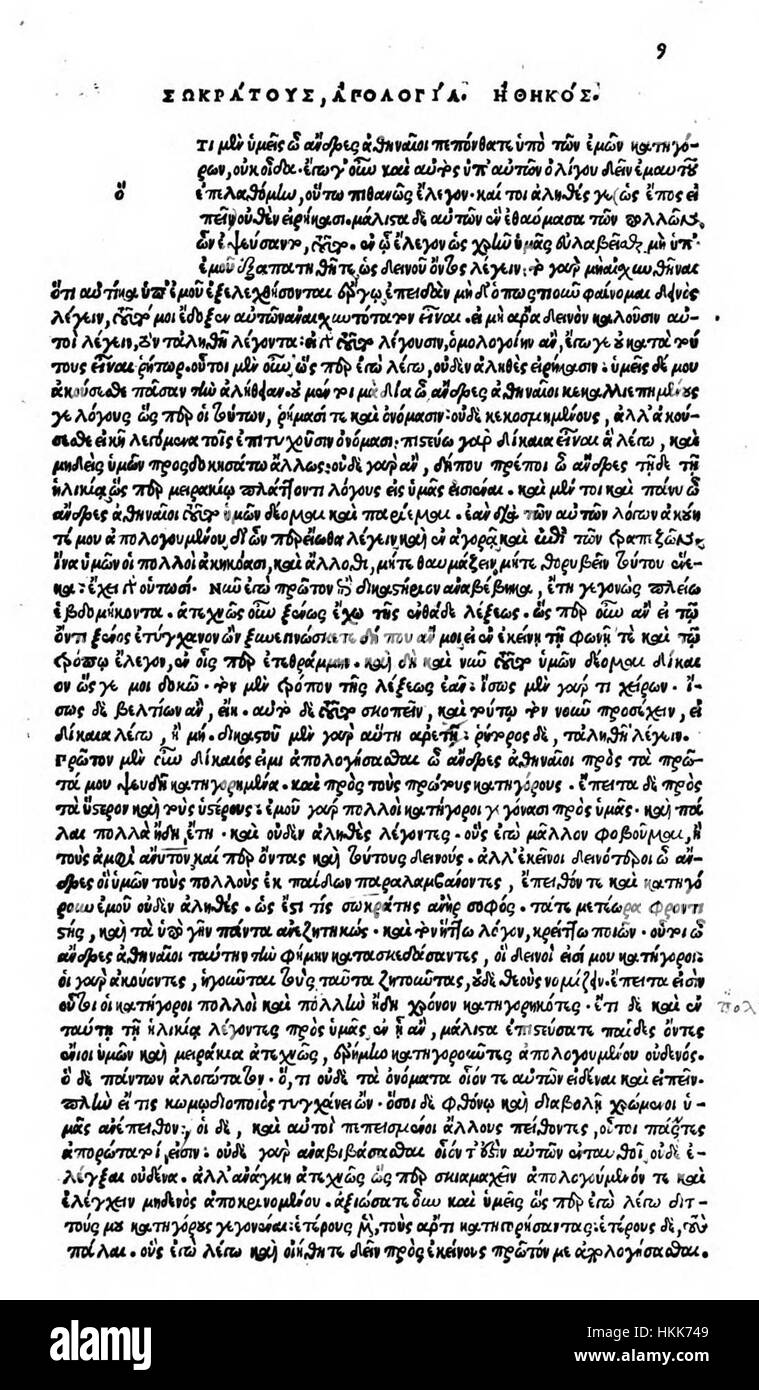 9
ΣΩΚΡΑΤΟΥΣ, ΑΠΟΛΟΓΙΑ. ΗΘΙΚΟΣ.
ΤΙ μὲν ὑμεῖς ὦ ἄνδρες ἀθηναῖοι πεπόνθατε ὑπὸ τῶν ἐμῶν κατηγό-
ρων, οὐκ οἶδα· ἐγὼ γ' οὖν καὶ αὐτὸς ὑπ' αὐτῶν ὀλίγου δεῖν ἐμαυτοῦ
ὅ
ἐπελαθόμην, οὕτω πιθανῶς ἔλεγον· καί τοι ἀληθές γε (ὡς ἔπος εἰ
πεῖν οὐθὲν εἰρήκασι. μάλιστα δὲ αὐτῶν ἓν ἐθαύμασα τῶν πολλῶν,
ὧν ἐψεύσαντο, τοῦτο. ἐν ᾧ ἔλεγον ὡς χρῆν ὑμᾶς εὐλαβεῖσθαι μὴ ὑπ'
ἐμοῦ ἐξαπατηθῆτε, ὡς δεινοῦ ὄντος λέγειν: τὸ γὰρ μὴ αἰσχυνθῆναι
ὅτι αὐτίκα ὑπ' ἐμοῦ ἐξελεγχθήσονται ἔργῳ, ἐπειδὰν μηδ' ὁπωστιοῦν φαίνομαι δεινὸς
λέγειν, τοῦτο μοι ἔδοξεν αὐτῶν ἀναισχυντότατον εἶναι. εἰ μὴ ἄρα δεινὸν καλοῦσιν οὗ-
τοι λέγειν, τὸν τἀληθῆ λέγοντα: εἰ μὲν γὰρ τοῦτο λέγουσιν, ὁμολογοίην ἂν, ἔγωγε οὐ κατὰ τού
τους εἶναι ῥήτωρ. οὗτοι μὲν οὖν, ὥσπερ ἐγὼ λέγω, οὐδὲν ἀληθὲς εἰρήκασιν: ὑμεῖς δέ μου
ἀκούσεσθε πᾶσαν τὴν ἀλήθειαν. οὐ μέντοι μὰ δία ὦ ἄνδρες ἀθηναῖοι κεκαλλιεπημένους
γε λόγους ὥσπερ οἱ τούτων, ῥήμασί τε καὶ ὀνόμασιν: οὐδὲ κεκοσμημένους, ἀλλ' ἀκού-
σεσθε εἰκῆ λεγόμενα τοῖς ἐπιτυχοῦσιν ὀνόμασι: πιστεύω γὰρ δίκαια εἶναι ἃ λέγω, καὶ
μηδεὶς ὑμῶν προσδοκησάτω ἄλλως: οὐδὲ γὰρ ἂν, δήπου πρέποι ὦ ἄνδρες τῇδε τῇ
ἡλικίᾳ ὥσπερ μειρακίῳ πλάττοντι λόγους εἰς ὑμᾶς εἰσιέναι. καὶ μέν τοι καὶ πάνυ ὦ
ἄνδρες ἀθηναῖοι τοῦτο ὑμῶν δέομαι καὶ παρίεμαι. ἐὰν διὰ τῶν αὐτῶν λόγων ἀκού
τέ μου ἀπολογουμένου, δι' ὧνπερ εἴωθα λέγειν καὶ ἐν ἀγορᾷ καὶ ἐπὶ τῶν τραπεζῶν,
ἵνα ὑμῶν οἱ πολλοὶ ἀκηκόασι, καὶ ἄλλοθι, μήτε θαυμάζειν, μήτε θορυβεῖν τούτου ἕνε-
κα: ἔχει γὰρ οὑτωσί. Νῦν ἐγὼ πρῶτον ἐπὶ δικαστήριον ἀναβέβηκα, ἔτη γεγονὼς πλείω
ἑβδομήκοντα. ἀτεχνῶς οὖν ξένως ἔχω τῆς ἐνθάδε λέξεως. ὥσπερ οὖν ἂν εἰ τῷ
ὄντι ξένος ἐτύγχανον ὢν ξυνεγινώσκετε δή που ἄν μοι εἰ ἐν ἐκείνῃ τῇ φωνῇ τὲ καὶ τῷ
τρόπῳ ἔλεγον, ἐν οἷσπερ ἐτεθράμμην. καὶ δὴ καὶ νῦν τοῦτο ὑμῶν δέομαι δίκαι
ον ὥς γε μοι δοκῶ. τὸν μὲν τρόπον τῆς λέξεως ἐᾶν: ἴσως μὲν γάρ τι χείρων. ἴ-
σως δὲ βελτίων ἂν, εἴη. αὐτὸ δὲ τοῦτο σκοπεῖν, καὶ τούτῳ τὸν νοῦν προσέχειν, εἰ
δίκαια λέγω, ἢ μή. δικαστοῦ μὲν γὰρ αὕτη ἀρετή: ῥήτορος δὲ, τἀληθῆ λέγειν.
Πρῶτον μὲν οὖν δίκαιός εἰμι ἀπολογήσασθαι ὦ ἄνδρες ἀθηναῖοι πρὸς τὰ πρῶ-
τά μου ψευδῆ κατηγορημένα. καὶ πρὸς τοὺς πρώτους κατηγόρους. ἔπειτα δὲ πρὸς
τὰ ὕστερον καὶ τοὺς ὑστέρους: ἐμοῦ γὰρ πολλοὶ κατήγοροι γεγόνασι πρὸς ὑμᾶς. καὶ πά
λαι πολλὰ ἤδη ἔτη. καὶ οὐδὲν ἀληθὲς λέγοντες. οὓς ἐγὼ μᾶλλον φοβοῦμαι, ἢ
τοὺς ἀμφὶ ἄνυτον, καί περ ὄντας καὶ τούτους δεινούς. ἀλλ' ἐκεῖνοι δεινότεροι ὦ ἄν-
δρες οἳ ὑμῶν τοὺς πολλοὺς ἐκ παίδων παραλαμβάνοντες, ἔπειθόν τε καὶ κατηγό
ρουν ἐμοῦ οὐδὲν ἀληθές. ὡς ἔστι τίς σωκράτης ἀνὴρ σοφός. τά τε μετέωρα φροντι
στής, καὶ τὰ ὑπὸ γῆν πάντα ἀνεζητηκώς. καὶ τὸν ἥττω λόγον, κρείττω ποιῶν. οὗτοι ὦ
ἄνδρες ἀθηναῖοι ταύτην τὴν φήμην κατασκεδάσαντες, οἱ δεινοί εἰσί μου κατήγοροι:
οἱ γὰρ ἀκούοντες, ἡγοῦνται τοὺς ταῦτα ζητοῦντας, οὐδὲ θεοὺς νομίζειν. ἔπειτα εἰσὶν
οὗτοι οἱ κατήγοροι πολλοὶ καὶ πολλὺν ἤδη χρόνον κατηγορηκότες. ἔτι δὲ καὶ ἐν
πολ
ταύτῃ τῇ ἡλικίᾳ λέγοντες πρὸς ὑμᾶς ἐν ᾗ ἂν, μάλιστα ἐπιστεύσατε παῖδες ὄντες
ἔνιοι ὑμῶν καὶ μειράκια ἀτεχνῶς, ἐρήμην κατηγοροῦντες ἀπολογουμένου οὐδενός.
ὃ δὲ πάντων ἀλογώτατον. ὅ, τι οὐδὲ τὰ ὀνόματα οἷόν τε αὐτῶν εἰδέναι καὶ εἰπεῖν.
πλὴν εἴ τις κωμῳδιοποιὸς τυγχάνει ὤν. ὅσοι δὲ φθόνῳ καὶ διαβολῇ χρώμενοι ὑ-
μᾶς ἀνέπειθον:, οἱ δὲ, καὶ αὐτοὶ πεπεισμένοι ἄλλους πείθοντες, οὗτοι πάντες
ἀπορώτατοί, εἰσιν: οὐδὲ γὰρ ἀναβιβάσασθαι οἷόν τ' ἐστὶν αὐτῶν ἐνταυθοῖ, οὐδ' ἐ-
λέγξαι οὐδένα. ἀλλ' ἀνάγκη ἀτεχνῶς ὥσπερ σκιαμαχεῖν ἀπολογούμενόν τε καὶ
ἐλέγχειν μηδενὸς ἀποκρινομένου. ἀξιώσατε οὖν καὶ ὑμεῖς ὥσπερ ἐγὼ λέγω διτ-
τούς μου κατηγόρους γεγονέναι: ἑτέρους μὲν, τοὺς ἄρτι κατηγορήσαντας: ἑτέρους δὲ, τοὺς
πάλαι. οὓς ἐγὼ λέγω καὶ οἰήθητε δεῖν πρὸς ἐκείνους πρῶτόν με ἀπολογήσασθαι.
alamy
Image ID: HKK749
www.alamy.com